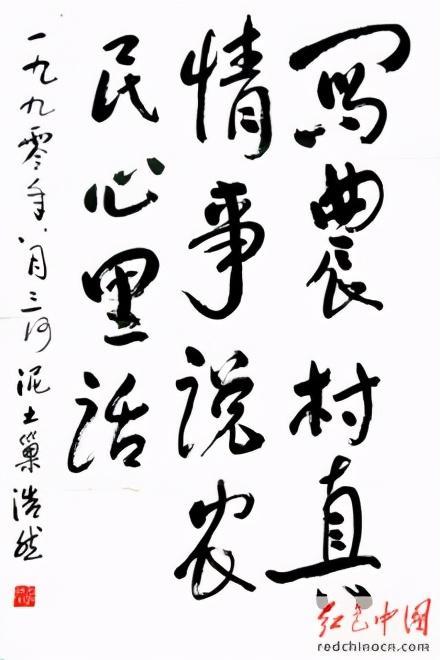 寫農村真
情事说农
民心里话
一九九零年八月三河泥土巢浩然
红色中国
redchinacn.com